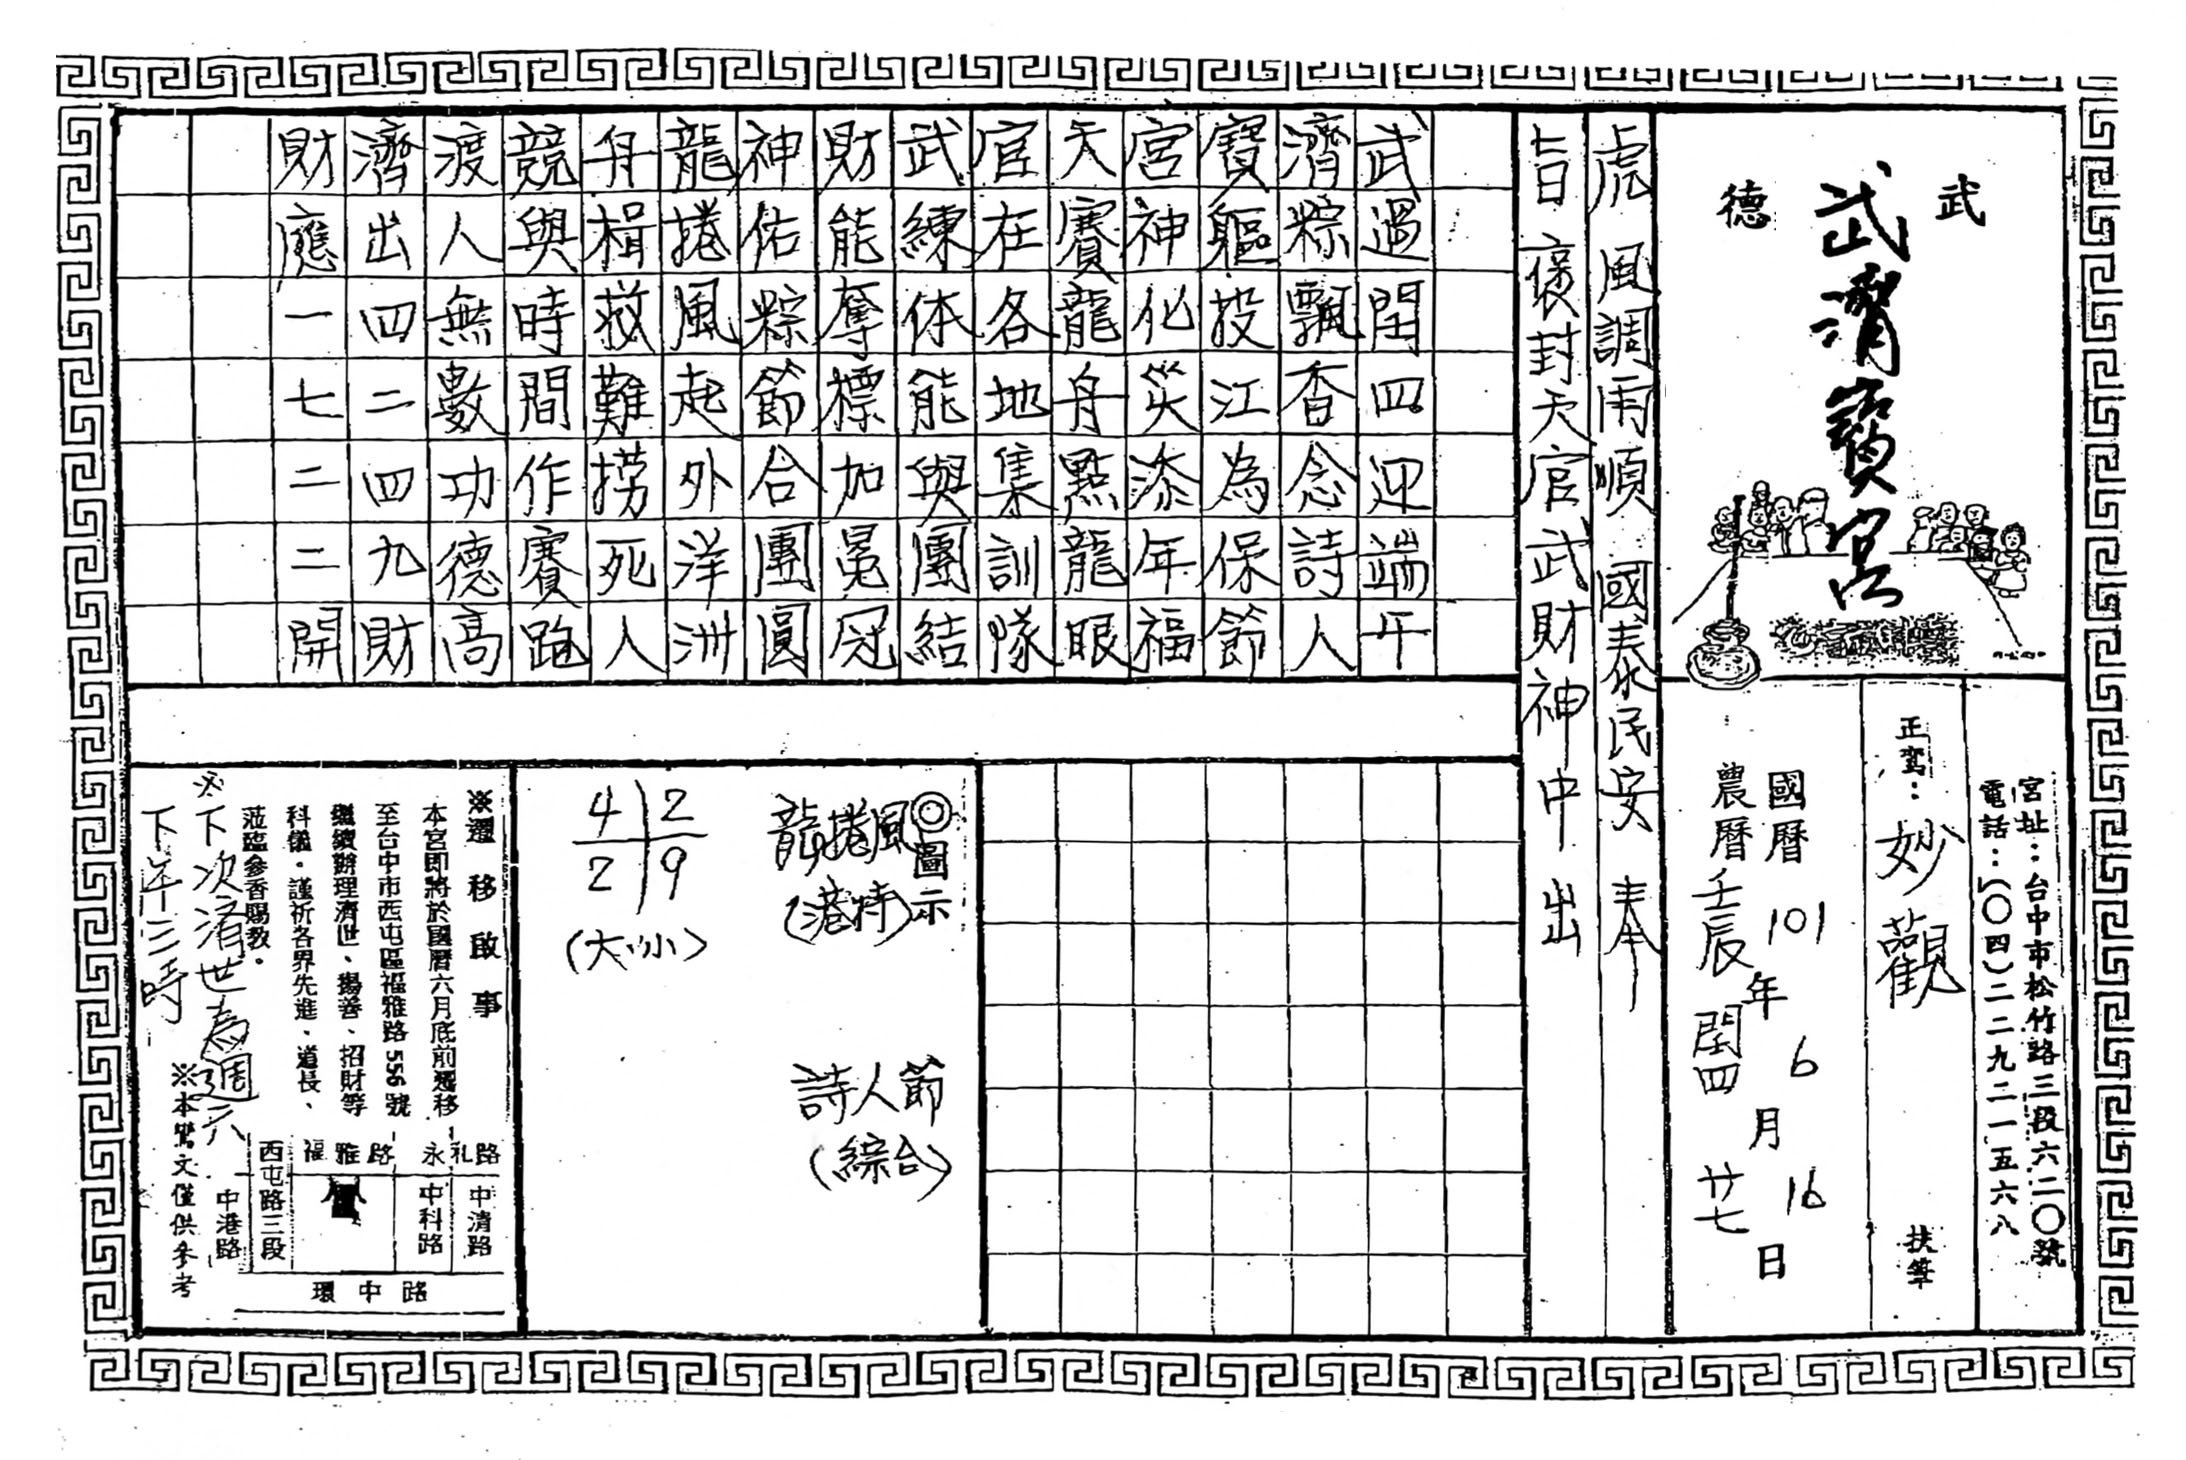 武德
武濟寶宮
宮址：台中市松竹路三段六二〇號
電話：（〇四）二二九二一五六八
正鸞：妙觀 扶筆
國曆101年6月16日
農曆壬辰閏四月廿七日
虎 風調雨順 國泰民安 奉
旨 褒封天官武財神中出
武過閏四迎端午
濟粽飄香念詩人
寶軀投江為保節
宮神化災添年福
天賽龍舟點龍眼
官在各地集訓隊
武練体能與團結
財能奪標加冕冠
神佑粽節合團圓
龍捲風起外洋洲
舟楫救難撈死人
競與時間作賽跑
渡人無數功德高
濟出四二四九財
財應一七二二開
◎圖示
龍捲風
（港特）
詩人節
（綜合）
4 2
2 9
（大小）
※遷移啟事
本宮即將於國曆六月底前遷移
至台中市西屯區福雅路556號
繼續辦理濟世、揚善、招財等
科儀。謹祈各界先進、道長、
蒞臨參香賜教。
※下次濟世為週六
下午三時
※本鸞文僅供參考
福雅路
永礼路
西屯路三段
中港路
中科路
中清路
環中路